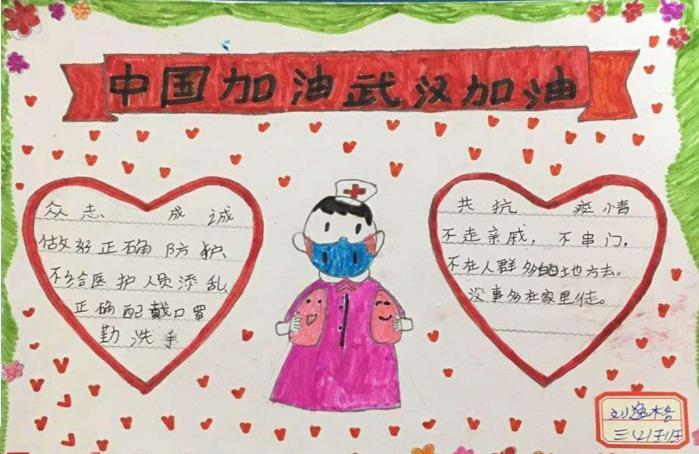 中国加油武汉加油
众志成诚
做好正确防护、
不给医护人员添乱,
正确配戴口罩
勤洗手
共抗疫情
不走亲戚,不串门,
不在人群多的地方去。
没事多在家里徒。